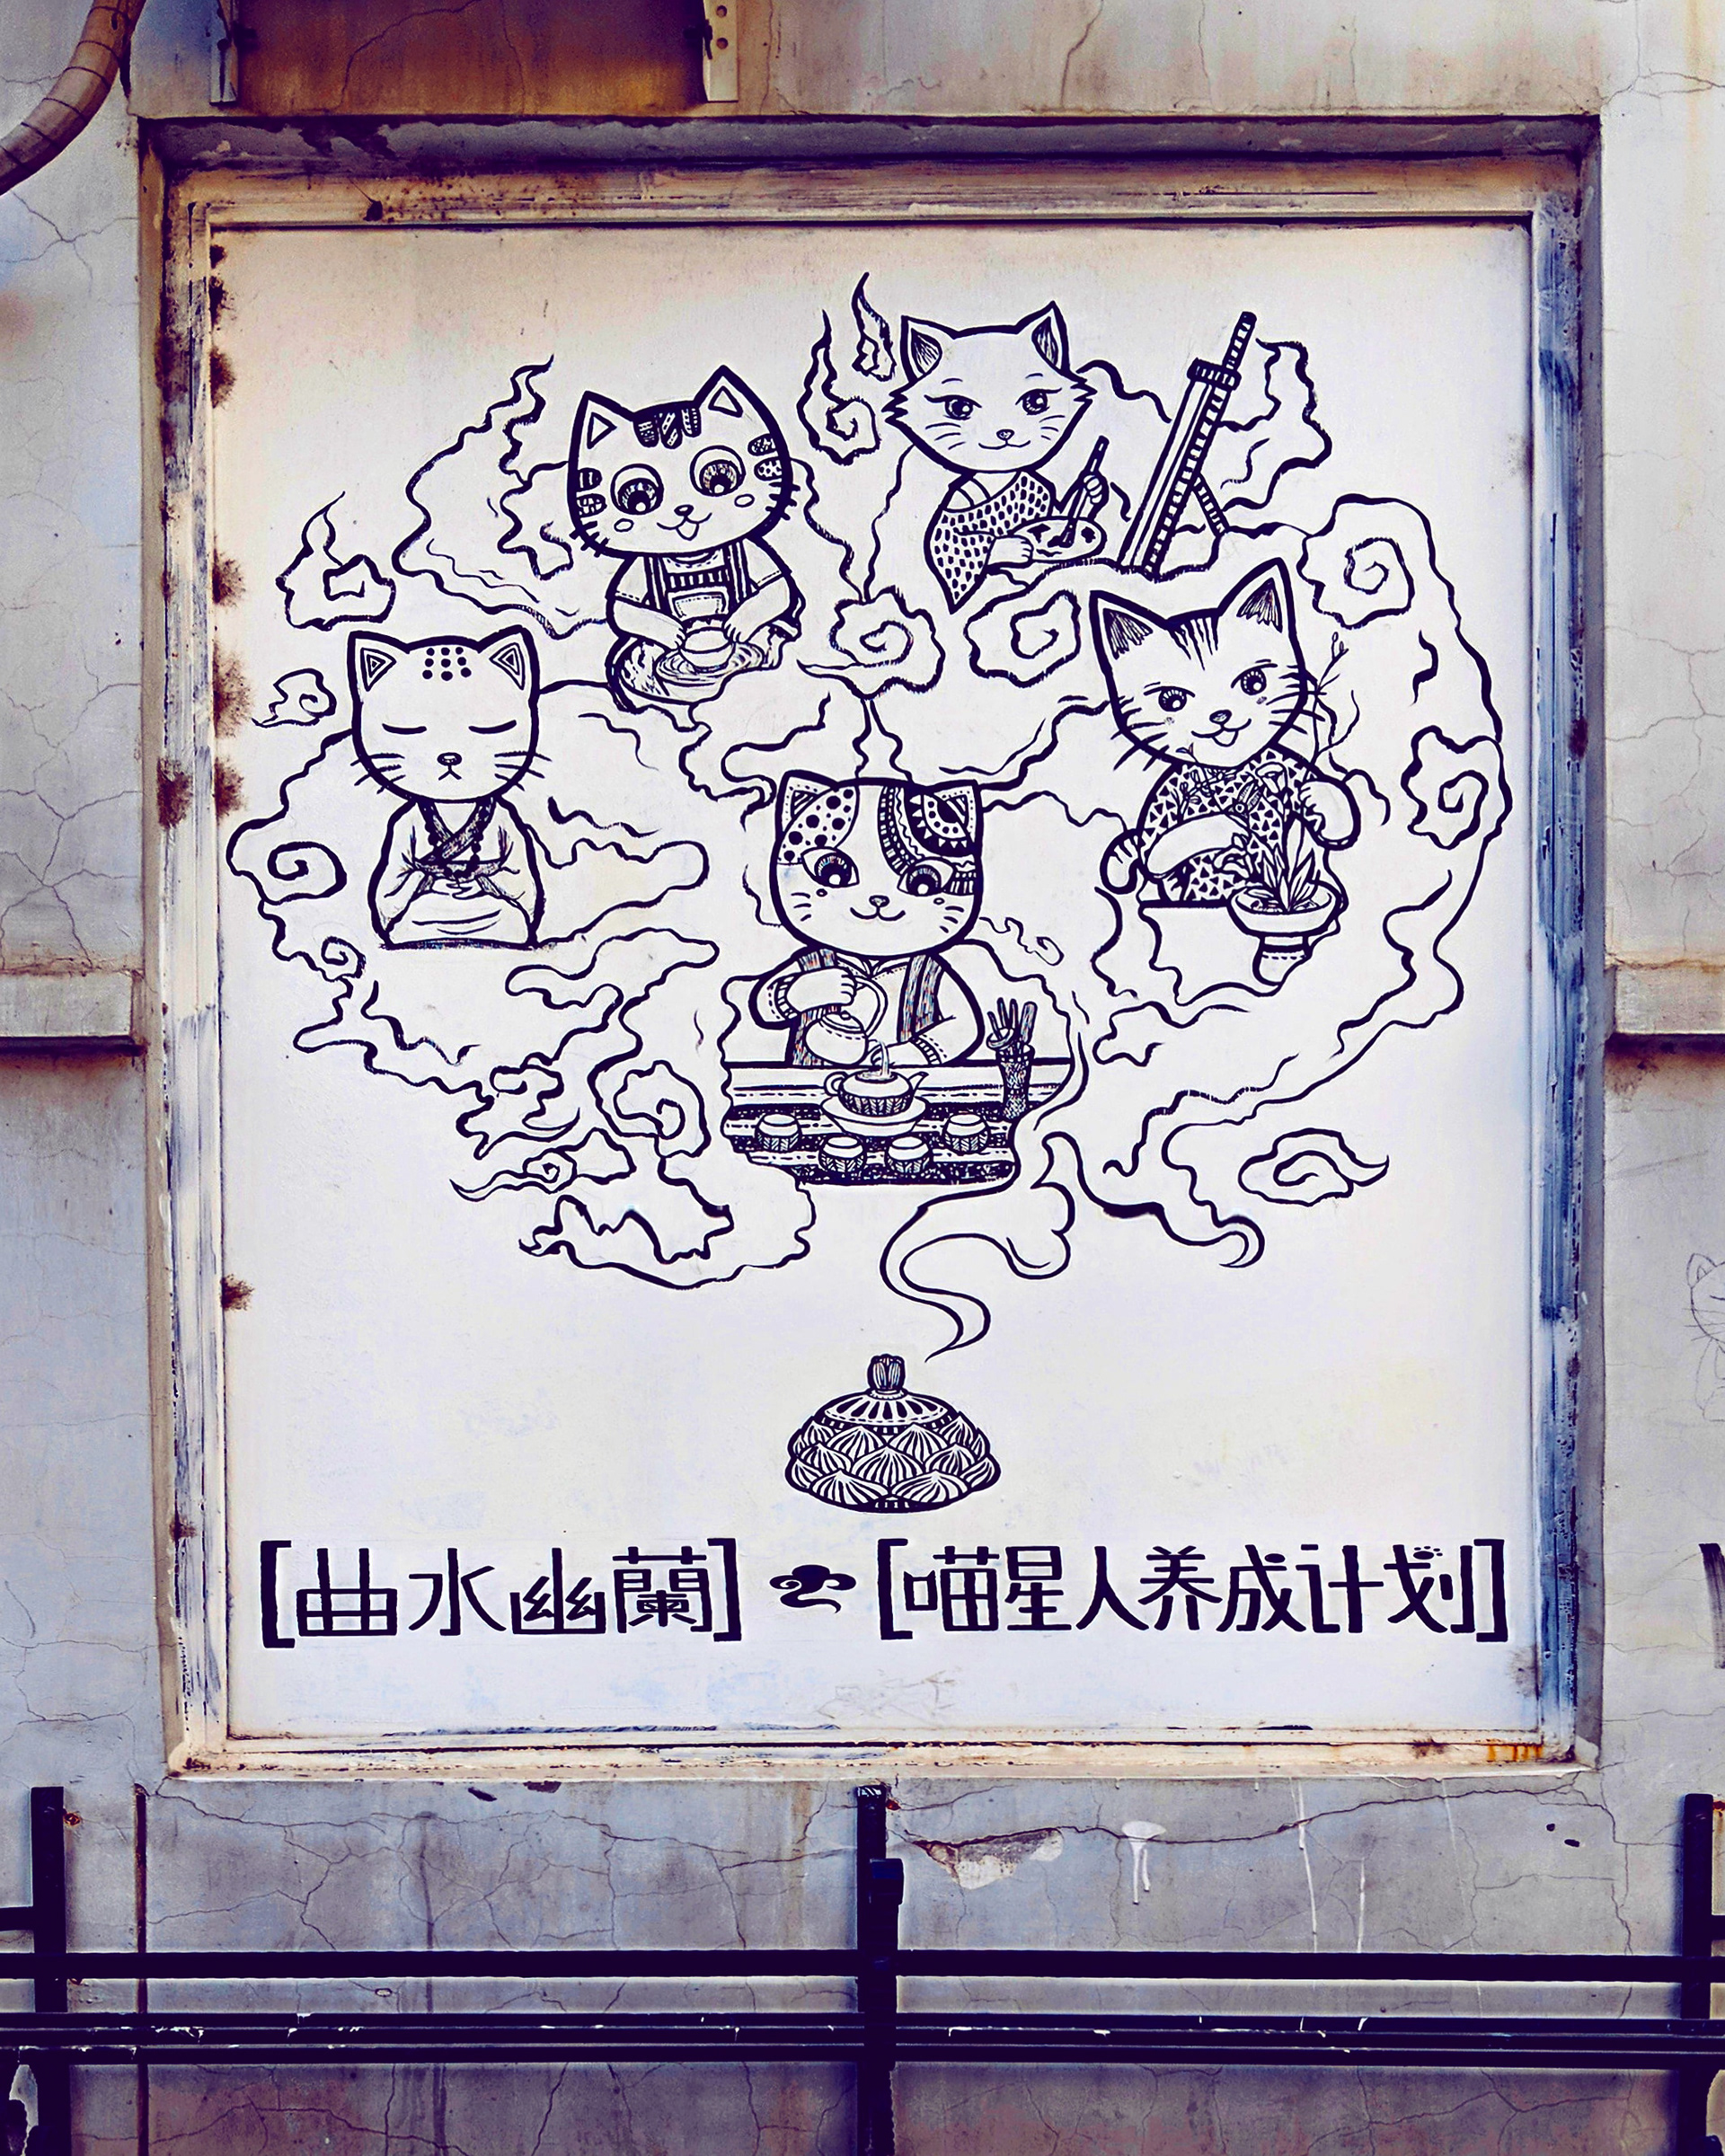 [曲水幽蘭] [喵星人养成计划]